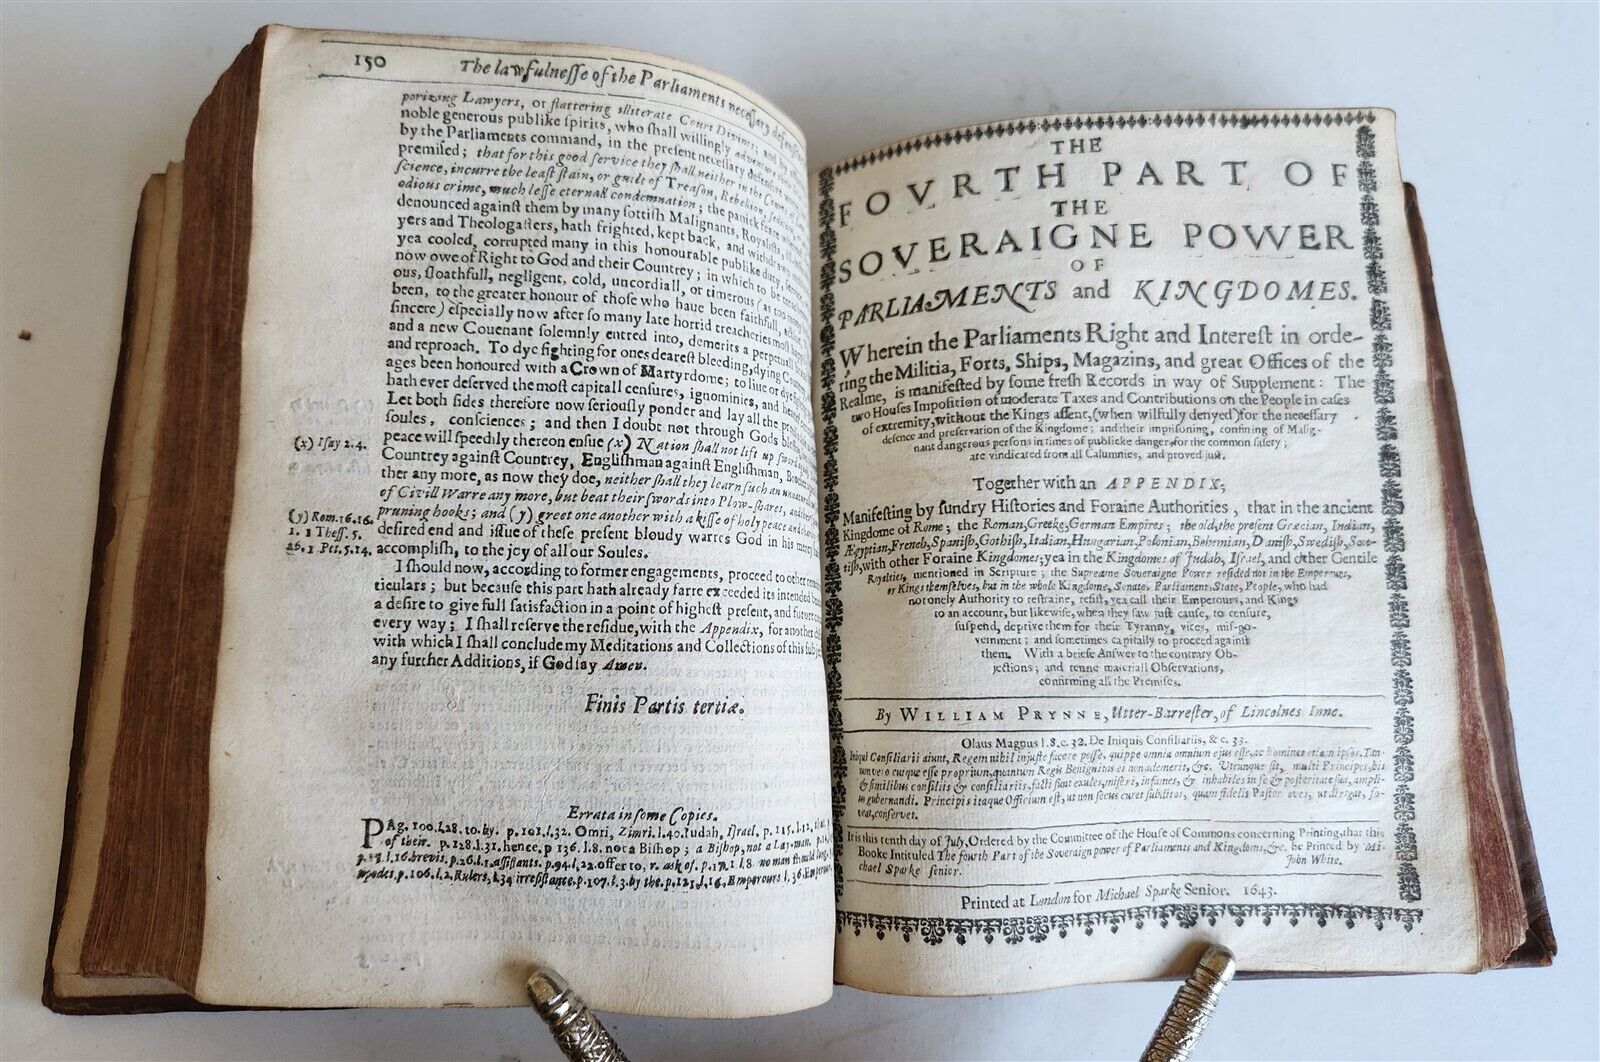 150
The lawfulnesse of the Parliaments necessary
porizing Lawyers, or flattering illiterate Court Divines;
noble generous publike spirits, who shall willingly
by the Parliaments command, in the present necessary defensive
premised; that for this good service they shall neither in the Court of
science, incurre the least stain, or guilt of Treason, Rebellion,
odious crime, much lesse eternall condemnation; the panick feare
denounced against them by many sottish Malignants, Royalists,
yers and Theologasters, hath frighted, kept back, and
yea cooled, corrupted many in this honourable publike duty,
now owe of Right to God and their Countrey; in which to be
ous, sloathfull, negligent, cold, uncordiall, or timerous (as too many
been, to the greater honour of those who have been faithfull,
sincere) especially now after so many late horrid treacheries most
and a new Covenant solemnly entred into, demerits a perpetuall
and reproach. To dye fighting for ones dearest bleeding, dying
ages been honoured with a Crown of Martyrdome; to live or dye
hath ever deserved the most capitall censures, ignominies, and
Let both sides therefore now seriously ponder and lay all the
soules, consciences; and then I doubt not through Gods
(x) Isay 2. 4.
peace will speedily thereon ensue (x) Nation shall not lift up
Countrey against Countrey, Englishman against Englishman,
ther any more, as now they doe, neither shall they learn such an
of Civill Warre any more, but beat their swords into Plow-shares,
(y) Rom. 16. 16.
pruning hooks; and (y) greet one another with a kisse of holy peace and
1. Thess. 5.
desired end and issue of these present bloudy warres God in his mercy
26. 1 Pet. 5. 14.
accomplish, to the joy of all our Soules.
I should now, according to former engagements, proceed to other
ticulars; but because this part hath already farre exceeded its intended
a desire to give full satisfaction in a point of highest present, and future
every way; I shall reserve the residue, with the Appendix, for another
with which I shall conclude my Meditations and Collections of this
any further Additions, if God say Amen.
Finis Partis tertiæ.
Errata in some Copies.
PAg. 100. l. 28. to. by. p. 101. l. 32. Omri, Zimri. l. 40. Iudah, Israel. p. 115. l. 12.
of their. p. 128. l. 31. hence, p 136. l. 8. not a Bishop; a Bishop, not a Lay-man.
l. 16. brevis. p. 26. l. 1. assistants. p. 94. l. 22. offer to, r. ask of. p. 171. l 8. no man should
p. 106. l. 2. Rulers, l. 34 irresistance. p. 107. l. 3. by the. p. 121. l. 16. Emperours l, 36.
THE
FOVRTH PART OF
THE
SOVERAIGNE POWER
OF
PARLIAMENTS and KINGDOMES.
Wherein the Parliaments Right and Interest in orde-
ring the Militia, Forts, Ships, Magazins, and great Offices of the
Realme, is manifested by some fresh Records in way of Supplement: The
two Houses Imposition of moderate Taxes and Contributions on the People in cases
of extremity, without the Kings assent, (when wilfully denyed) for the necessary
defence and preservation of the Kingdome; and their imprisoning, confining of Malig-
nant dangerous persons in times of publicke danger, for the common safety;
are vindicated from all Calumnies, and proved just.
Together with an APPENDIX;
Manifesting by sundry Histories and Foraine Authorities, that in the ancient
Kingdome of Rome; the Roman, Greeke, German Empires; the old, the present Græcian, Indian,
Ægyptian, French, Spanish, Gothish, Italian, Hungarian, Polonian, Bohemian, Danish, Swedish, Scot-
tish, with other Foraine Kingdomes; yea in the Kingdomes of Judah, Israel, and other Gentile
Royalties, mentioned in Scripture; the Supreame Soveraigne Power resided not in the Emperours,
or Kings themselves, but in the whole Kingdome, Senate, Parliament, State, People, who had
not onely Authority to restraine, resist, yea call their Emperours, and Kings
to an account, but likewise, when they saw just cause, to censure,
suspend, deprive them for their Tyranny, vices, mis-go-
vernment; and sometimes capitally to proceed against
them. With a briefe Answer to the contrary Ob-
jections; and tenne materiall Observations,
confirming all the Premises.
By WILLIAM PRYNNE, Utter-Barrester, of Lincolnes Inne.
Olaus Magnus l. 8. c. 32. De Iniquis Consiliariis, & c. 33.
Iniqui Consiliarii aiunt, Regem nihil injuste facere posse, quippe omnia omnium ejus esse, ac homines etiam ipsos. Tan-
tum vero cuique esse proprium, quantum Regis Benignitas ei non ademerit, &c. Utcunque sit, multi Principes, his
& similibus consiliis & consiliariis, facti sunt exules, miseri, infames, & inhabiles in se & posteritate sua, ampli-
us gubernandi. Principis itaque Officium est, ut non secus curet subditos, quam fidelis Pastor oves, ut dirigat, fo-
veat, conservet.
It is this tenth day of July, Ordered by the Committee of the House of Commons concerning Printing, that this
Booke Intituled The fourth Part of the Soveraign power of Parliaments and Kingdoms, &c. be Printed by Mi-
chael Sparke senior. John White.
Printed at London for Michael Sparke Senior. 1643.